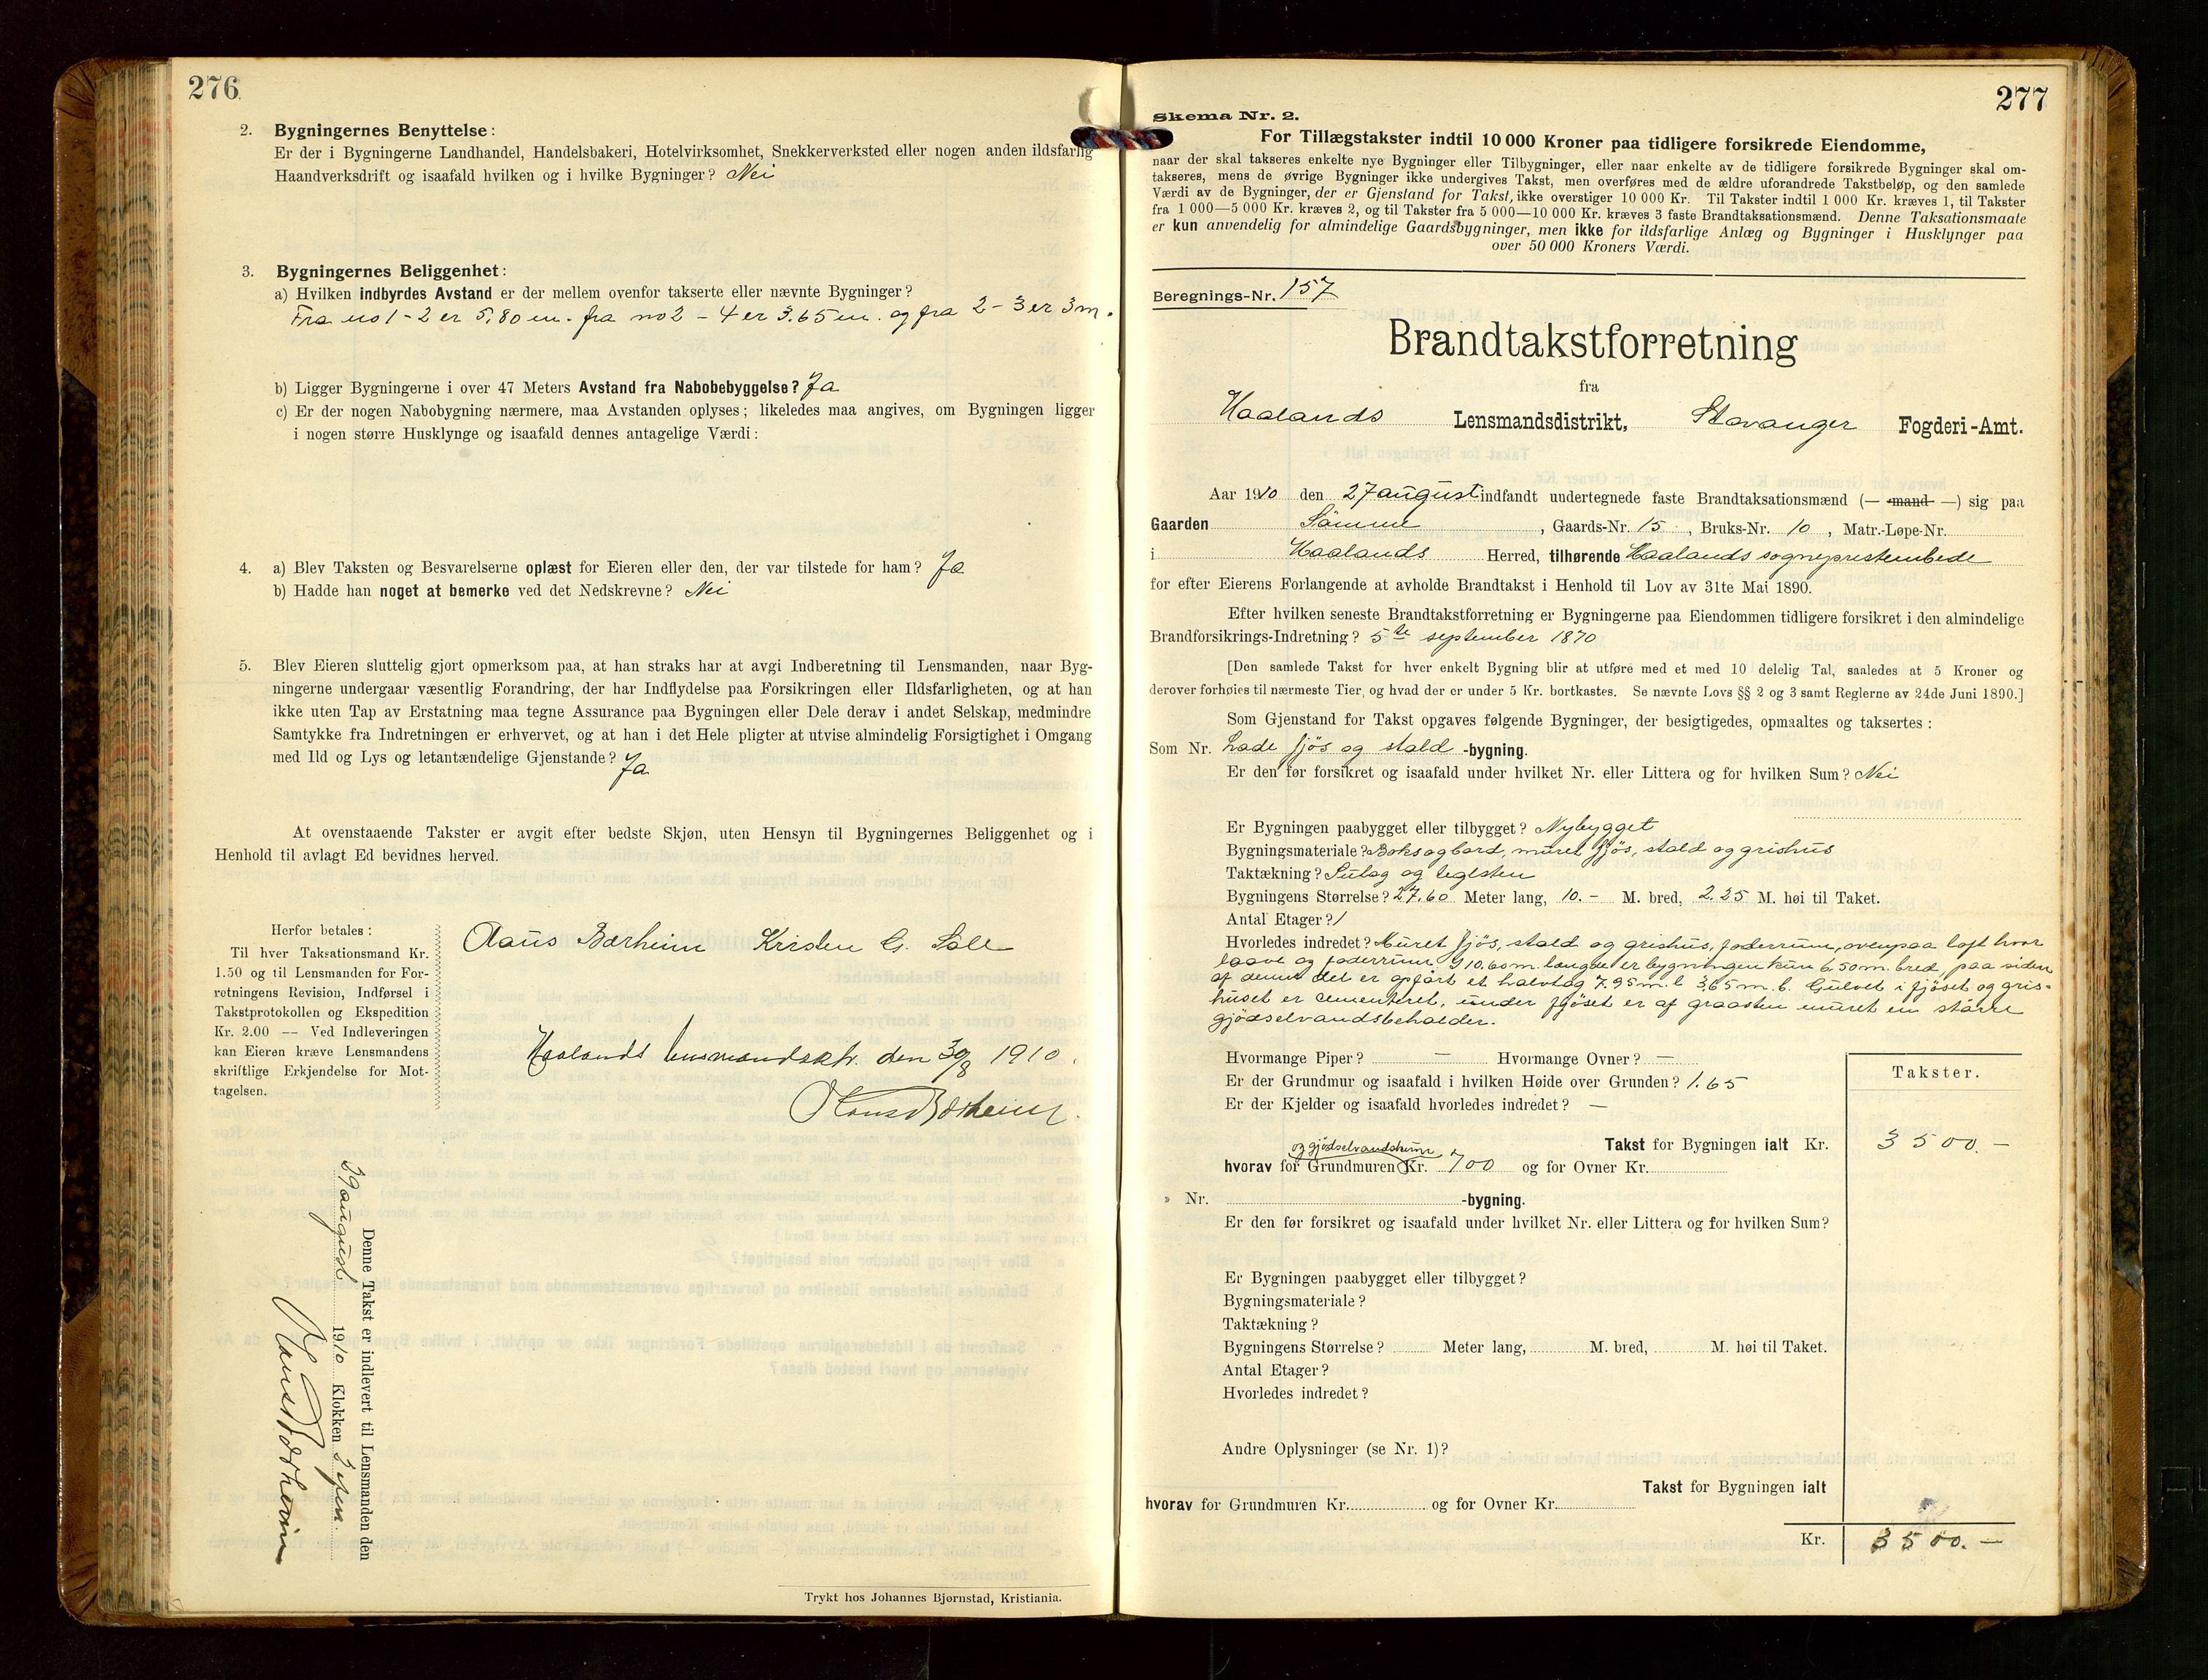 276
2. Bygningernes Benyttelse:
Er der i Bygningerne Landhandel, Handelsbakeri, Hotelvirksomhet, Snekkerverksted eller nogen anden ildsfarlig
Haandverksdrift og isaafald hvilken og i hvilke Bygninger? Nei
3. Bygningernes Beliggenhet:
a) Hvilken indbyrdes Avstand er der mellem ovenfor takserte eller nævnte Bygninger?
Fra no 1 - 2 er 5,80 m. fra no 2 - 4 er 3.65 m. og fra 2 - 3 er 3 m.
b) Ligger Bygningerne i over 47 Meters Avstand fra Nabobebyggelse? Ja
c) Er der nogen Nabobygning nærmere, maa Avstanden oplyses; likeledes maa angives, om Bygningen ligger
i nogen større Husklynge og isaafald dennes antagelige Værdi:
4. a) Blev Taksten og Besvarelserne oplæst for Eieren eller den, der var tilstede for ham? Ja
b) Hadde han noget at bemerke ved det Nedskrevne? Nei
5. Blev Eieren sluttelig gjort opmerksom paa, at han straks har at avgi Indberetning til Lensmanden, naar Byg-
ningerne undergaar væsentlig Forandring, der har Indflydelse paa Forsikringen eller Ildsfarligheten, og at han
ikke uten Tap av Erstatning maa tegne Assurance paa Bygningen eller Dele derav i andet Selskap, medmindre
Samtykke fra Indretningen er erhvervet, og at han i det Hele pligter at utvise almindelig Forsigtighet i Omgang
med Ild og Lys og letantændelige Gjenstande? Ja
At ovenstaaende Takster er avgit efter bedste Skjøn, uten Hensyn til Bygningernes Beliggenhet og i
Henhold til avlagt Ed bevidnes herved.
Herfor betales:
Til hver Taksationsmand Kr.
1.50 og til Lensmanden for For-
retningens Revision, Indførsel i
Takstprotokollen og Ekspedition
Kr. 2.00 — Ved Indleveringen
kan Eieren kræve Lensmandens
skriftlige Erkjendelse for Mot-
tagelsen.
Bærheim Kristen G.
Haalands lensmandsktr. den 30/8 1910.
Hans Bærheim
Denne Takst er indlevert til Lensmanden den
39 august 1910 Klokken 3 
Hans Bærheim
Trykt hos Johannes Bjørnstad, Kristiania.
277
Skema Nr. 2.
For Tillægstakster indtil 10 000 Kroner paa tidligere forsikrede Eiendomme,
naar der skal takseres enkelte nye Bygninger eller Tilbygninger, eller naar enkelte av de tidligere forsikrede Bygninger skal om-
takseres, mens de øvrige Bygninger ikke undergives Takst, men overføres med de ældre uforandrede Takstbeløp, og den samlede
Værdi av de Bygninger, der er Gjenstand for Takst, ikke overstiger 10 000 Kr. Til Takster indtil 1 000 Kr. kræves 1, til Takster
fra 1 000—5 000 Kr. kræves 2, og til Takster fra 5 000—10 000 Kr. kræves 3 faste Brandtaksationsmænd. Denne Taksationsmaate
er kun anvendelig for almindelige Gaardsbygninger, men ikke for ildsfarlige Anlæg og Bygninger i Husklynger paa
over 50 000 Kroners Værdi.
Beregnings-Nr. 157
Brandtakstforretning
fra
Haalands Lensmandsdistrikt, Stavanger Fogderi-Amt.
Aar 1910 den 27 august indfandt undertegnede faste Brandtaksationsmænd (— mand —) sig paa
Gaarden Sömme, Gaards-Nr. 15, Bruks-Nr. 10, Matr.-Løpe-Nr.
i Haalands Herred, tilhørende Haalands sogneprestembede
for efter Eierens Forlangende at avholde Brandtakst i Henhold til Lov av 31te Mai 1890.
Efter hvilken seneste Brandtakstforretning er Bygningerne paa Eiendommen tidligere forsikret i den almindelige
Brandforsikrings-Indretning? 5te september 1870
[Den samlede Takst for hver enkelt Bygning blir at utføre med et med 10 delelig Tal, saaledes at 5 Kroner og
derover forhøies til nærmeste Tier, og hvad der er under 5 Kr. bortkastes. Se nævnte Lovs §§ 2 og 3 samt Reglerne av 24de Juni 1890.]
Som Gjenstand for Takst opgaves følgende Bygninger, der besigtigedes, opmaaltes og taksertes:
Som Nr. Lade fjös og stald -bygning.
Er den før forsikret og isaafald under hvilket Nr. eller Littera og for hvilken Sum? Nei
Er Bygningen paabygget eller tilbygget? Nybygget
Bygningsmateriale? Boks og bord, muret fjös, stald og grishus
Taktækning? Sutag og teglsten
Bygningens Størrelse? 27,60 Meter lang, 10.- M. bred, 2.25 M. høi til Taket.
Antal Etager? 1
Hvorledes indredet? Muret fjös, stald og grishus, foderrum, ovenpaa loft hvor
laave og foderrum. I 10.60 m. længde er bygningen kun 6.50 m. bred, paa siden
af denne del er opfört et halvtag 7.95 m. l 3,65 m. b. Gulvet i fjöset og gris-
huset er cementeret, under fjöset er af graasten muret en större
gjödselvandsbeholder.
Hvormange Piper? — Hvormange Ovner? —
Er der Grundmur og isaafald i hvilken Høide over Grunden? 1.65
Er der Kjelder og isaafald hvorledes indredet? —
Takster.
Takst for Bygningen ialt Kr. 3500.-
og gjödselvandskum
hvorav for Grundmuren Kr. 700 og for Ovner Kr.
» Nr. -bygning.
Er den før forsikret og isaafald under hvilket Nr. eller Littera og for hvilken Sum?
Er Bygningen paabygget eller tilbygget?
Bygningsmateriale?
Taktækning?
Bygningens Størrelse? Meter lang, M. bred, M. høi til Taket.
Antal Etager?
Hvorledes indredet?
Andre Oplysninger (se Nr. 1)?
Takst for Bygningen ialt
hvorav for Grundmuren Kr. og for Ovner Kr.
Kr. 3500.-